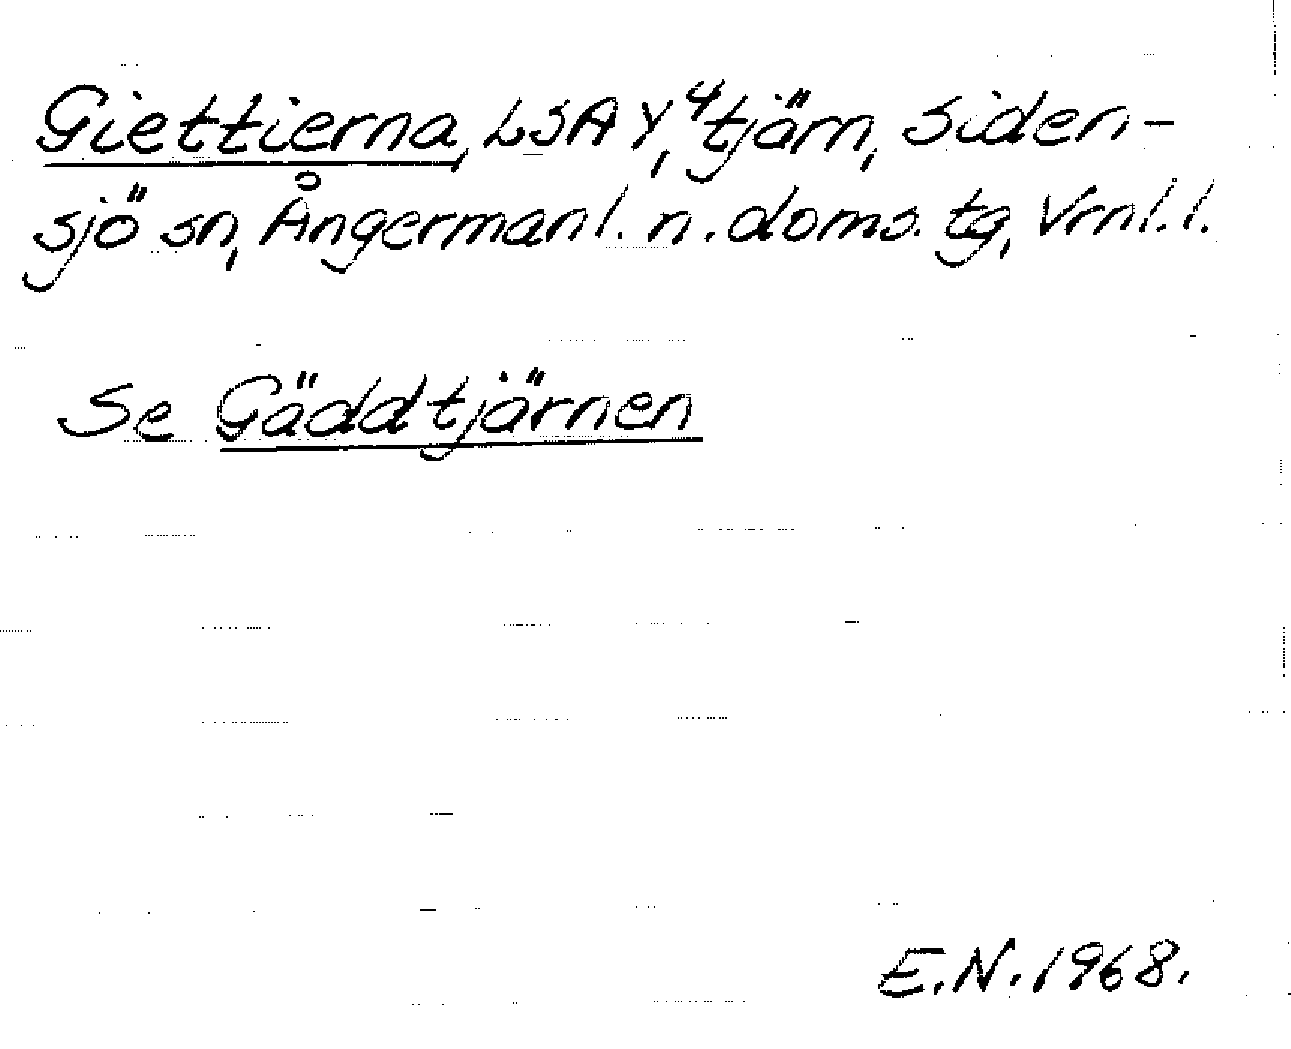 Giettierna, LSA Y⁴, tjärn, Siden-
sjö sn, Ångermanl. n. doms. tg, Vrnl. l.
Se Gäddtjärnen
E.N. 1968.